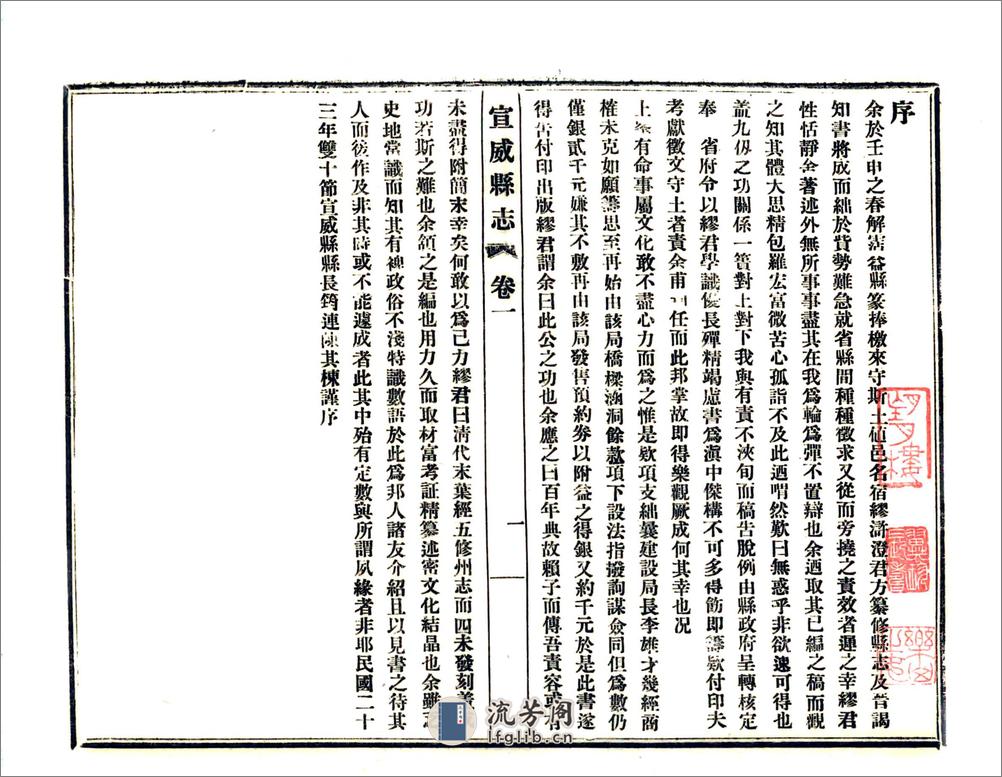 序
余於壬申之春解霑益縣篆捧檄來守斯土値邑名宿繆澍澄君方纂修縣志及晉謁
知書將成而絀於貲勢難急就省縣間種種徵求又從而旁撓之責效者遲之幸繆君
性恬靜舍著述外無所事事盡其在我爲輪爲彈不置辯也余迺取其已編之稿而觀
之知其體大思精包羅宏富微苦心孤詣不及此迺喟然歎曰無惑乎非欲速可得也
蓋九仞之功關係一簣對上對下我與有責不浹旬而稿吿脫例由縣政府呈轉核定
奉 省府令以繆君學識優長殫精竭慮書爲滇中傑構不可多得飭即籌欵付印夫
考獻徵文守土者責余甫 任而此邦掌故即得樂觀厥成何其幸也况
上峯有命事屬文化敢不盡心力而爲之惟是欵項支絀曩建設局長李雄才幾經商
榷未克如願籌思至再始由該局橋樑涵洞餘款項下設法指撥詢謀僉同但爲數仍
僅銀貳千元嫌其不敷再由該局發售預約券以附益之得銀又約千元於是此書遂
得吿付印出版繆君謂余曰此公之功也余應之曰百年典故賴子而傳吾責容或有
宣威縣志 卷一 一
未盡得附簡末幸矣何敢以爲己力繆君曰淸代末葉經五修州志而四未發刻蓋
功若斯之難也余頷之是編也用力久而取材富考証精纂述密文化結晶也余雖
史地當識而知其有裨政俗不淺特識數語於此爲邦人諸友介紹且以見書之待其
人而後作及非其時或不能遽成者此其中殆有定數與所謂夙緣者非耶民國二十
三年雙十節宣威縣縣長筠連陳其棟謹序
流芳阁
lfglib.cn